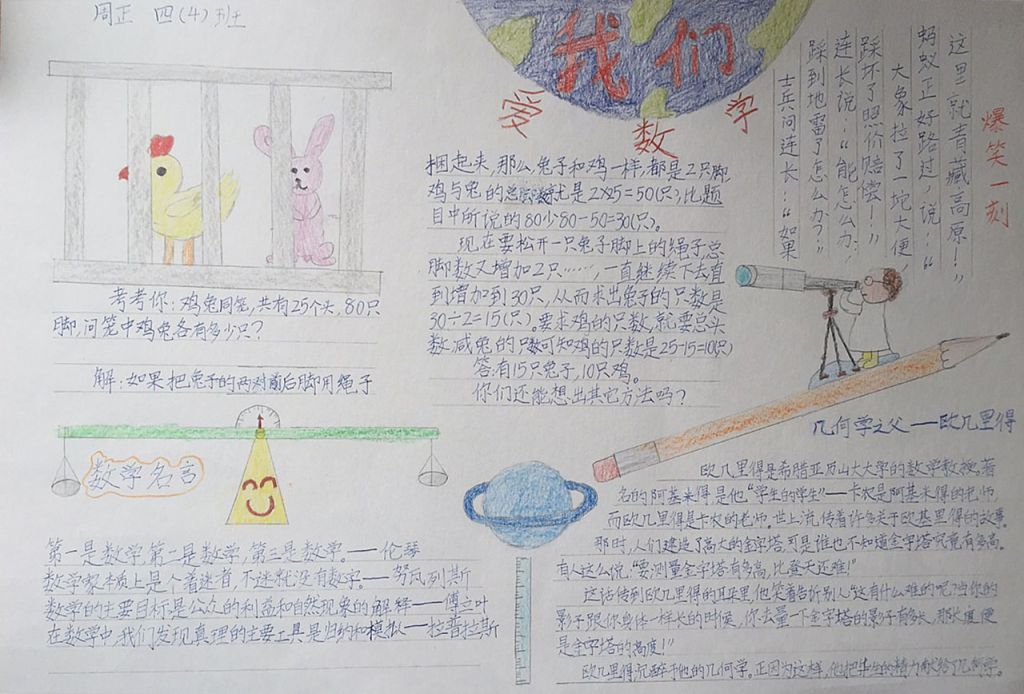 周正 四(4)班
我们
爱数学
爆笑一刻
士兵问连长:“如果
踩到地雷了怎么办?”
连长说:“能怎么办,
踩坏了照价赔偿!”
大象拉了一坨大便
蚂蚁正好路过,说:“
这里就青藏高原!”
考考你:鸡兔同笼,共有25个头,80只
脚,问笼中鸡兔各有多少只?
解:如果把兔子的两对前后脚用绳子
捆起来,那么,兔子和鸡一样,都是2只脚
鸡与兔的总脚数就是2×25=50(只),比题
目中所说的80少80-50=30(只)。
现在要松开一只兔子脚上的绳子总
脚数又增加2只……,一直继续下去直
到增加到30只,从而求出兔子的只数是
30÷2=15(只)。要求鸡的只数,就要总头
数减兔的只数可知鸡的只数是25-15=10(只)
答:有15只兔子,10只鸡。
你们还能想出其它方法吗?
数学名言
第一是数学,第二是数学,第三是数学。——伦琴
数学家本质上是个着迷者,不迷就没有数字——努瓦列斯
数学的主要目标是公众的利益和自然现象的解释——傅立叶
在数学中,我们发现真理的主要工具是归纳和模拟——拉普拉斯
几何学之父——欧几里得
欧几里得是希腊亚历山大大学的数学教授,著
名的阿基米得是他“学生的学生”——卡农是阿基米得的老师,
而欧几里得是卡农的老师。世上流传着许多关于欧基里得的故事。
那时,人们建造了高大的金字塔,可是谁也不知道金字塔究竟有多高。
有人这么说:“要测量金字塔有多高,比登天还难!”
这话传到欧几里得的耳朵里,他笑着告诉别人:“这有什么难的呢?当你的
影子跟你身体一样长的时候,你去量一下金字塔的影子有多长,那长度便
是金字塔的高度!”
欧几里得沉醉于他的几何学。正因为这样,他把毕生的精力献给了几何学。